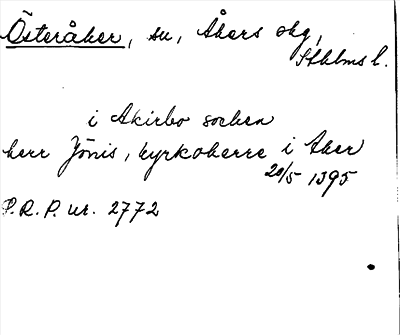 Österåker, sn, Åkers skg,
Sthlms l.
i Akirbo socken
herr Jönis, kyrkoherre i Aker
20/5 1395
P.R.P. nr. 2772